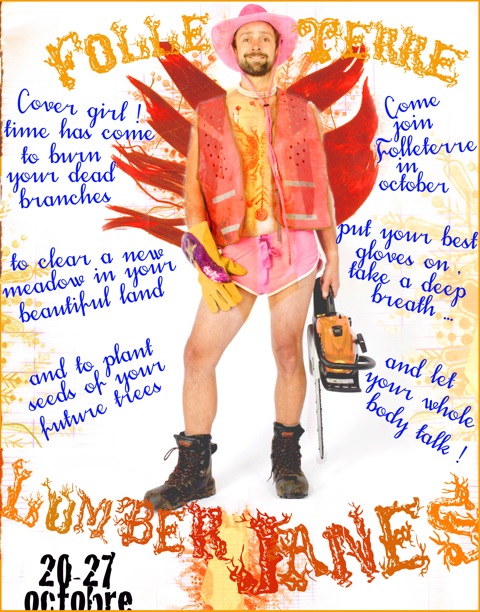 FOLLE TERRE
Cover girl !
time has come
to burn
your dead
branches
to clear a new
meadow in your
beautiful land
and to plant
seeds of your
future trees
Come
join
Folleterre
in
october
put your best
gloves on,
take a deep
breath ...
and let
your whole
body talk !
LUMBER JANES
20-27
octobre